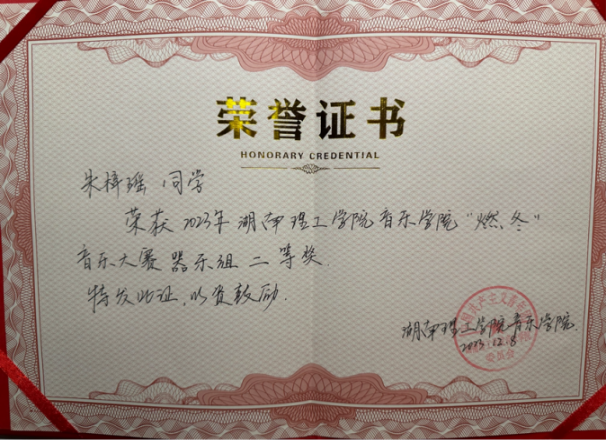 荣誉证书
HONORARY CREDENTIAL
朱梓瑶 同学
荣获 2023年 湖南理工学院音乐学院“燃冬”
音乐大赛 器乐组 二等奖.
特发此证,以资鼓励.
湖南理工学院音乐学院
2023.12.8
委员会